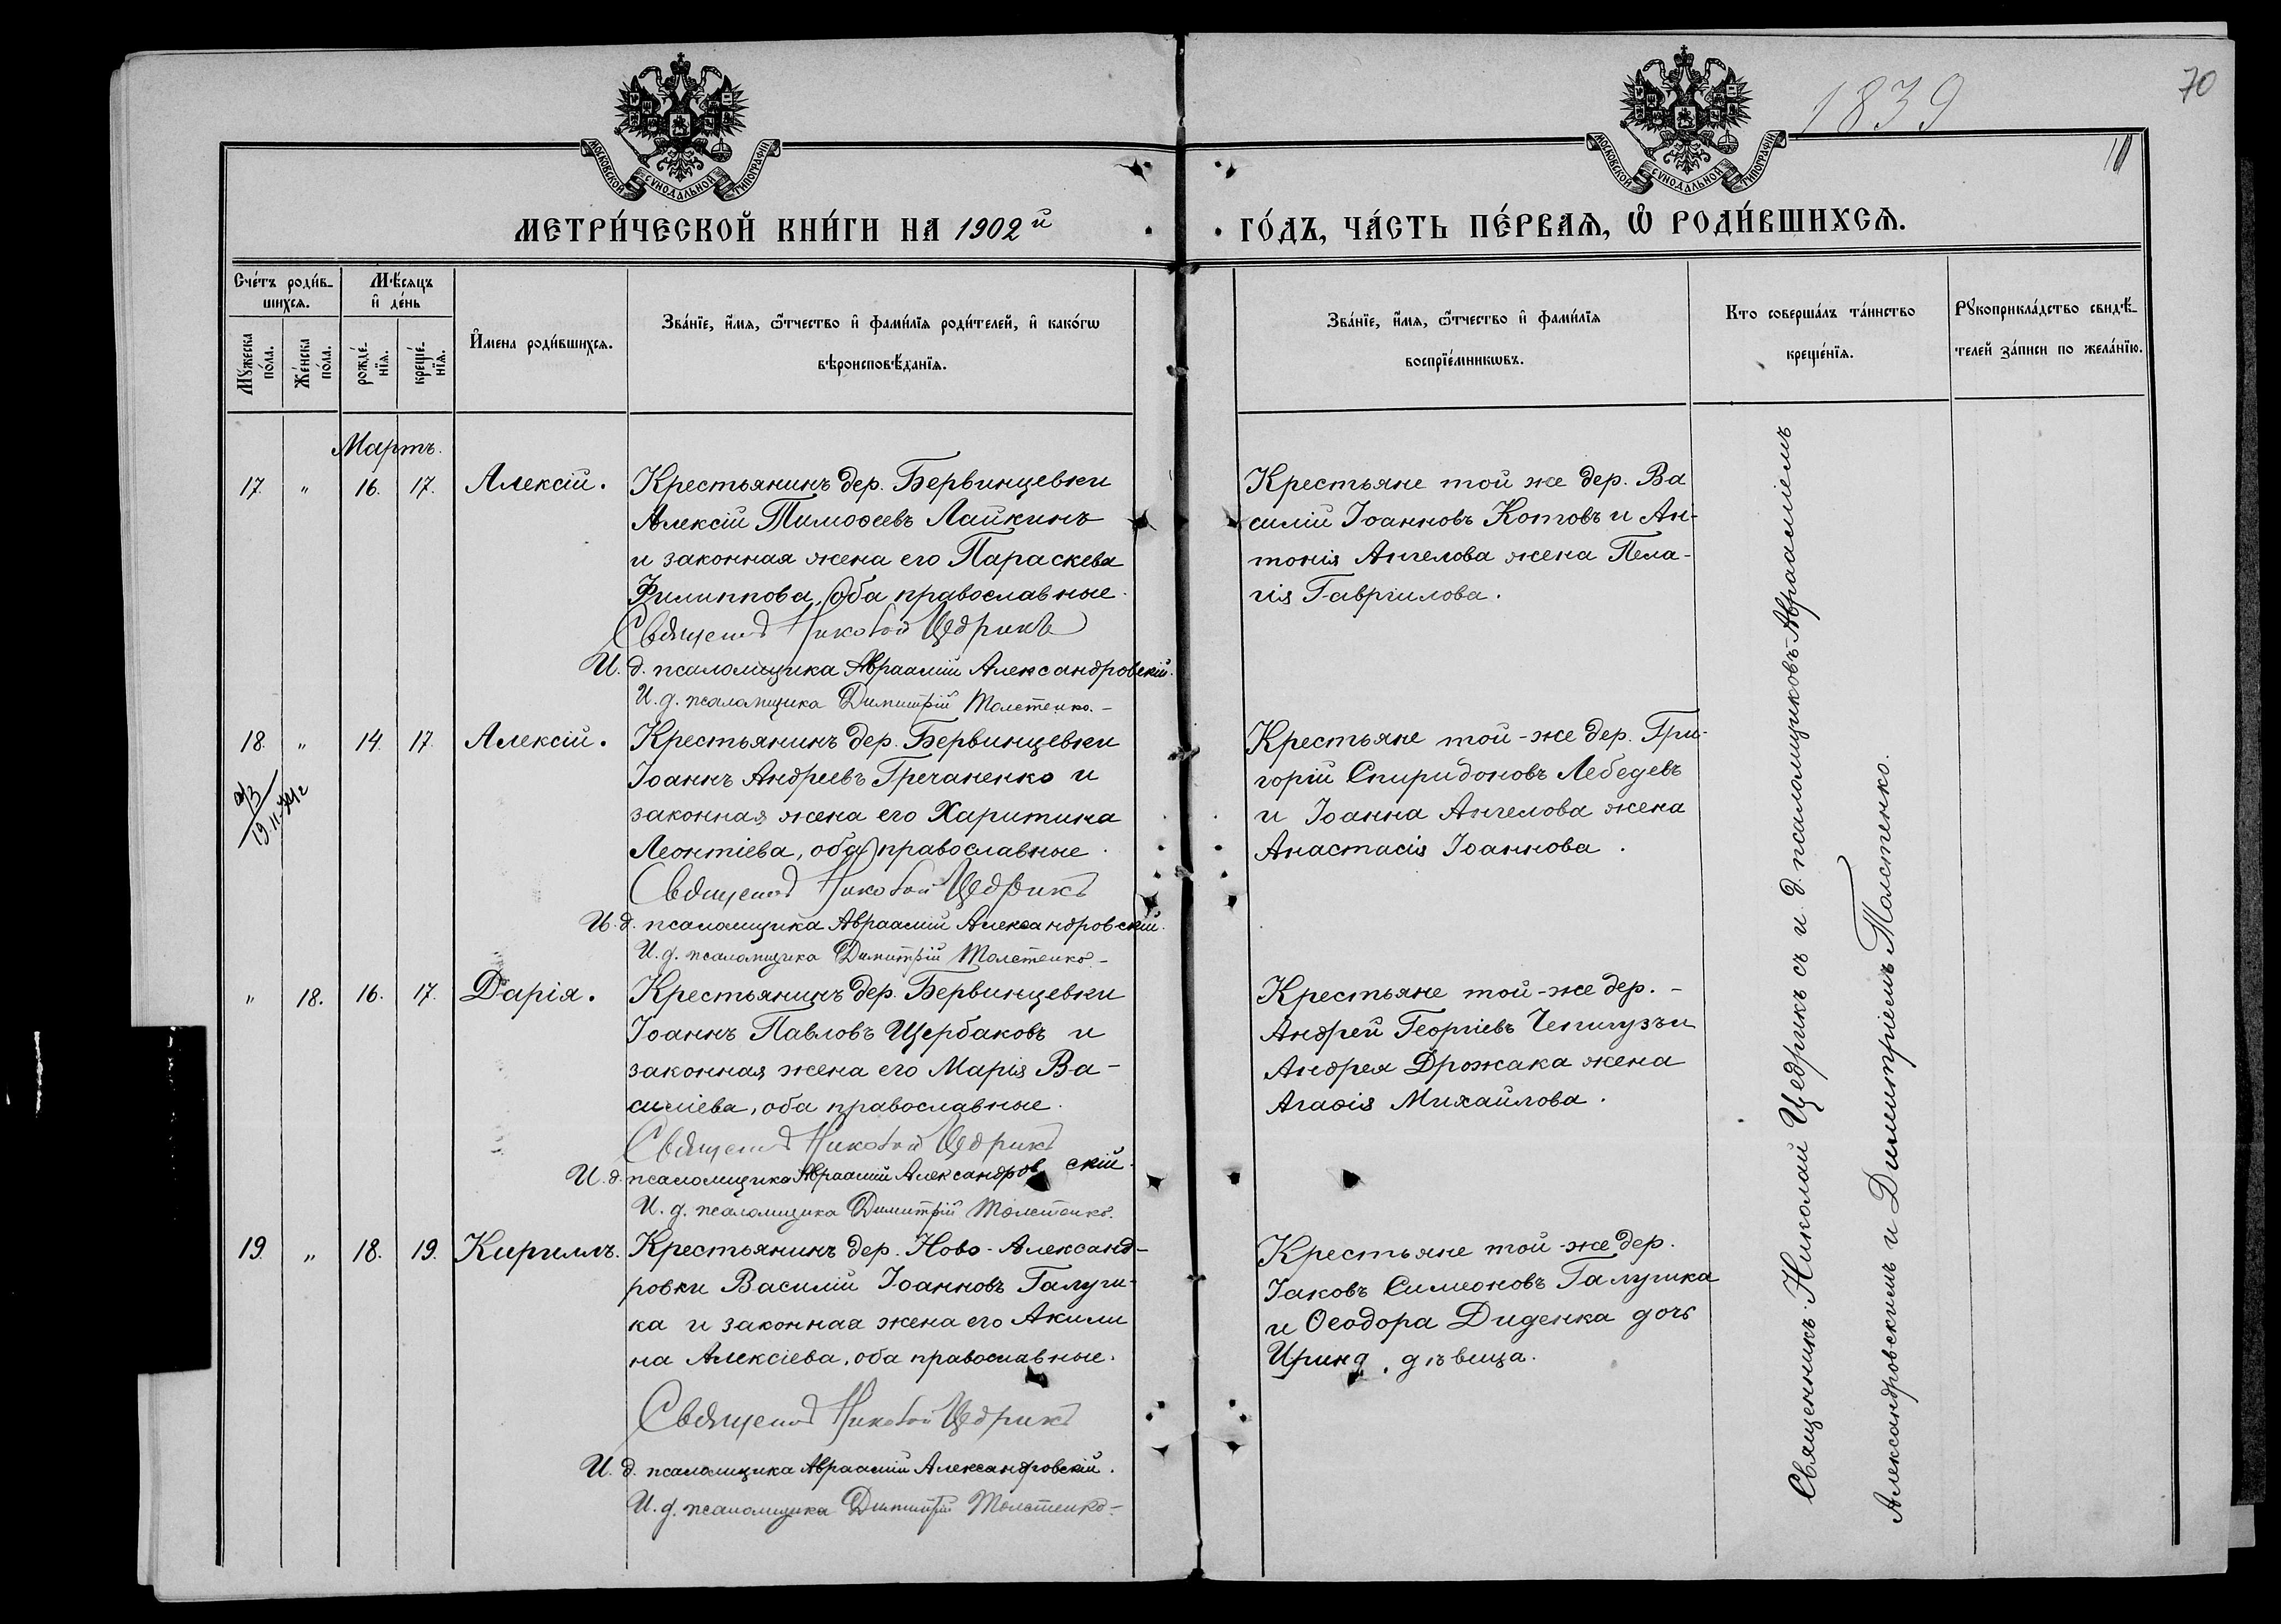 1839
70
МОСКОВСКОЙ СѴНОДАЛЬНОЙ ТИПОГРАФІИ
МОСКОВСКОЙ СѴНОДАЛЬНОЙ ТИПОГРАФІИ
МЕТРИ́ЧЕСКОЙ КНИ́ГИ НА 1902й
ГО́ДЪ, ЧА́СТЬ ПЕ́РВАѦ, Ѡ҆ РОДИ́ВШИХСѦ.
Сче́тъ роди́в-
шихсѧ.
Мꙋ́жеска
по́ла.
Же́нска
по́ла.
Мѣ́сѧцъ
и҆ де́нь
рожде́-
нїѧ.
креще́-
нїѧ.
И҆мена роди́вшихсѧ.
Зва́нїе, и҆́мѧ, ѻ҆́тчество и҆ фами́лїѧ роди́телей, и҆ како́гѡ
вѣроисповѣ́данїѧ.
Зва́нїе, и҆́мѧ, ѻ҆́тчество и҆ фами́лїѧ
воспрїе́мникѡвъ.
Кто соверша́лъ та́инство
креще́нїѧ.
Рꙋкоприкла́дство свидѣ́-
телей за́писи по жела́нїю.
Мартъ.
17. " 16. 17. Алексій.
Крестьянинъ дер. Бервинцевки
Алексій Тимоѳеевъ Лайкинъ
и законная жена его Параскева
Филиппова, оба православные.
Священ Николай Цедрикъ
И. д. псаломщика Авраамій Александровскій.
И. д. псаломщика Димитрій Толстенко.-
Крестьяне той же дер. Ва
силій Іоанновъ Котовъ и Ан-
тонія Ангелова жена Пела-
гія Гавріилова.
18. " 14. 17. Алексій.
Крестьянинъ дер. Бервинцевки
Іоаннъ Андреевъ Гречаненко и
законная жена его Харитина
Леонтіева, оба православные.
Священ Николай Цедрикъ
И. д. псаломщика Авраамій Александровскій.
И. д. псаломщика Димитрій Толстенко-
Крестьяне той-же дер. Гри-
горій Спиридоновъ Лебедевъ
и Іоанна Ангелова жена
Анастасія Іоаннова.
" 18. 16. 17. Дарія.
Крестьянинъ дер. Бервинцевки
Іоаннъ Павловъ Щербаковъ и
законная жена его Марія Ва-
силіева, оба православные.
Священ Николай Цедрикъ
И. д. псаломщика Авраамій Александровскій.
И. д. псаломщика Димитрій Толстенко.
Крестьяне той-же дер. -
Андрей Георгіевъ и
Андрея Дрожака жена
Агаѳія Михайлова.
19. " 18. 19. Кириллъ.
Крестьянинъ дер. Ново-Александ-
ровки Василій Іоанновъ Галуш-
ка и законная жена его Акили
на Алексіева, оба православные.
Священ Николай Цедрикъ
И. д. псаломщика Авраамій Александровскій.
И. д. псаломщика Димитрій Толстенко-
Крестьяне той-же дер.
Іаковъ Симеоновъ Галушка
и Ѳеодора Диденка дочь
Ирина, дѣвица.
Священникъ Николай Цедрикъ съ и. д. псаломщиковъ Авраамiемъ
Александровскимъ и Димитріемъ Толстенко.